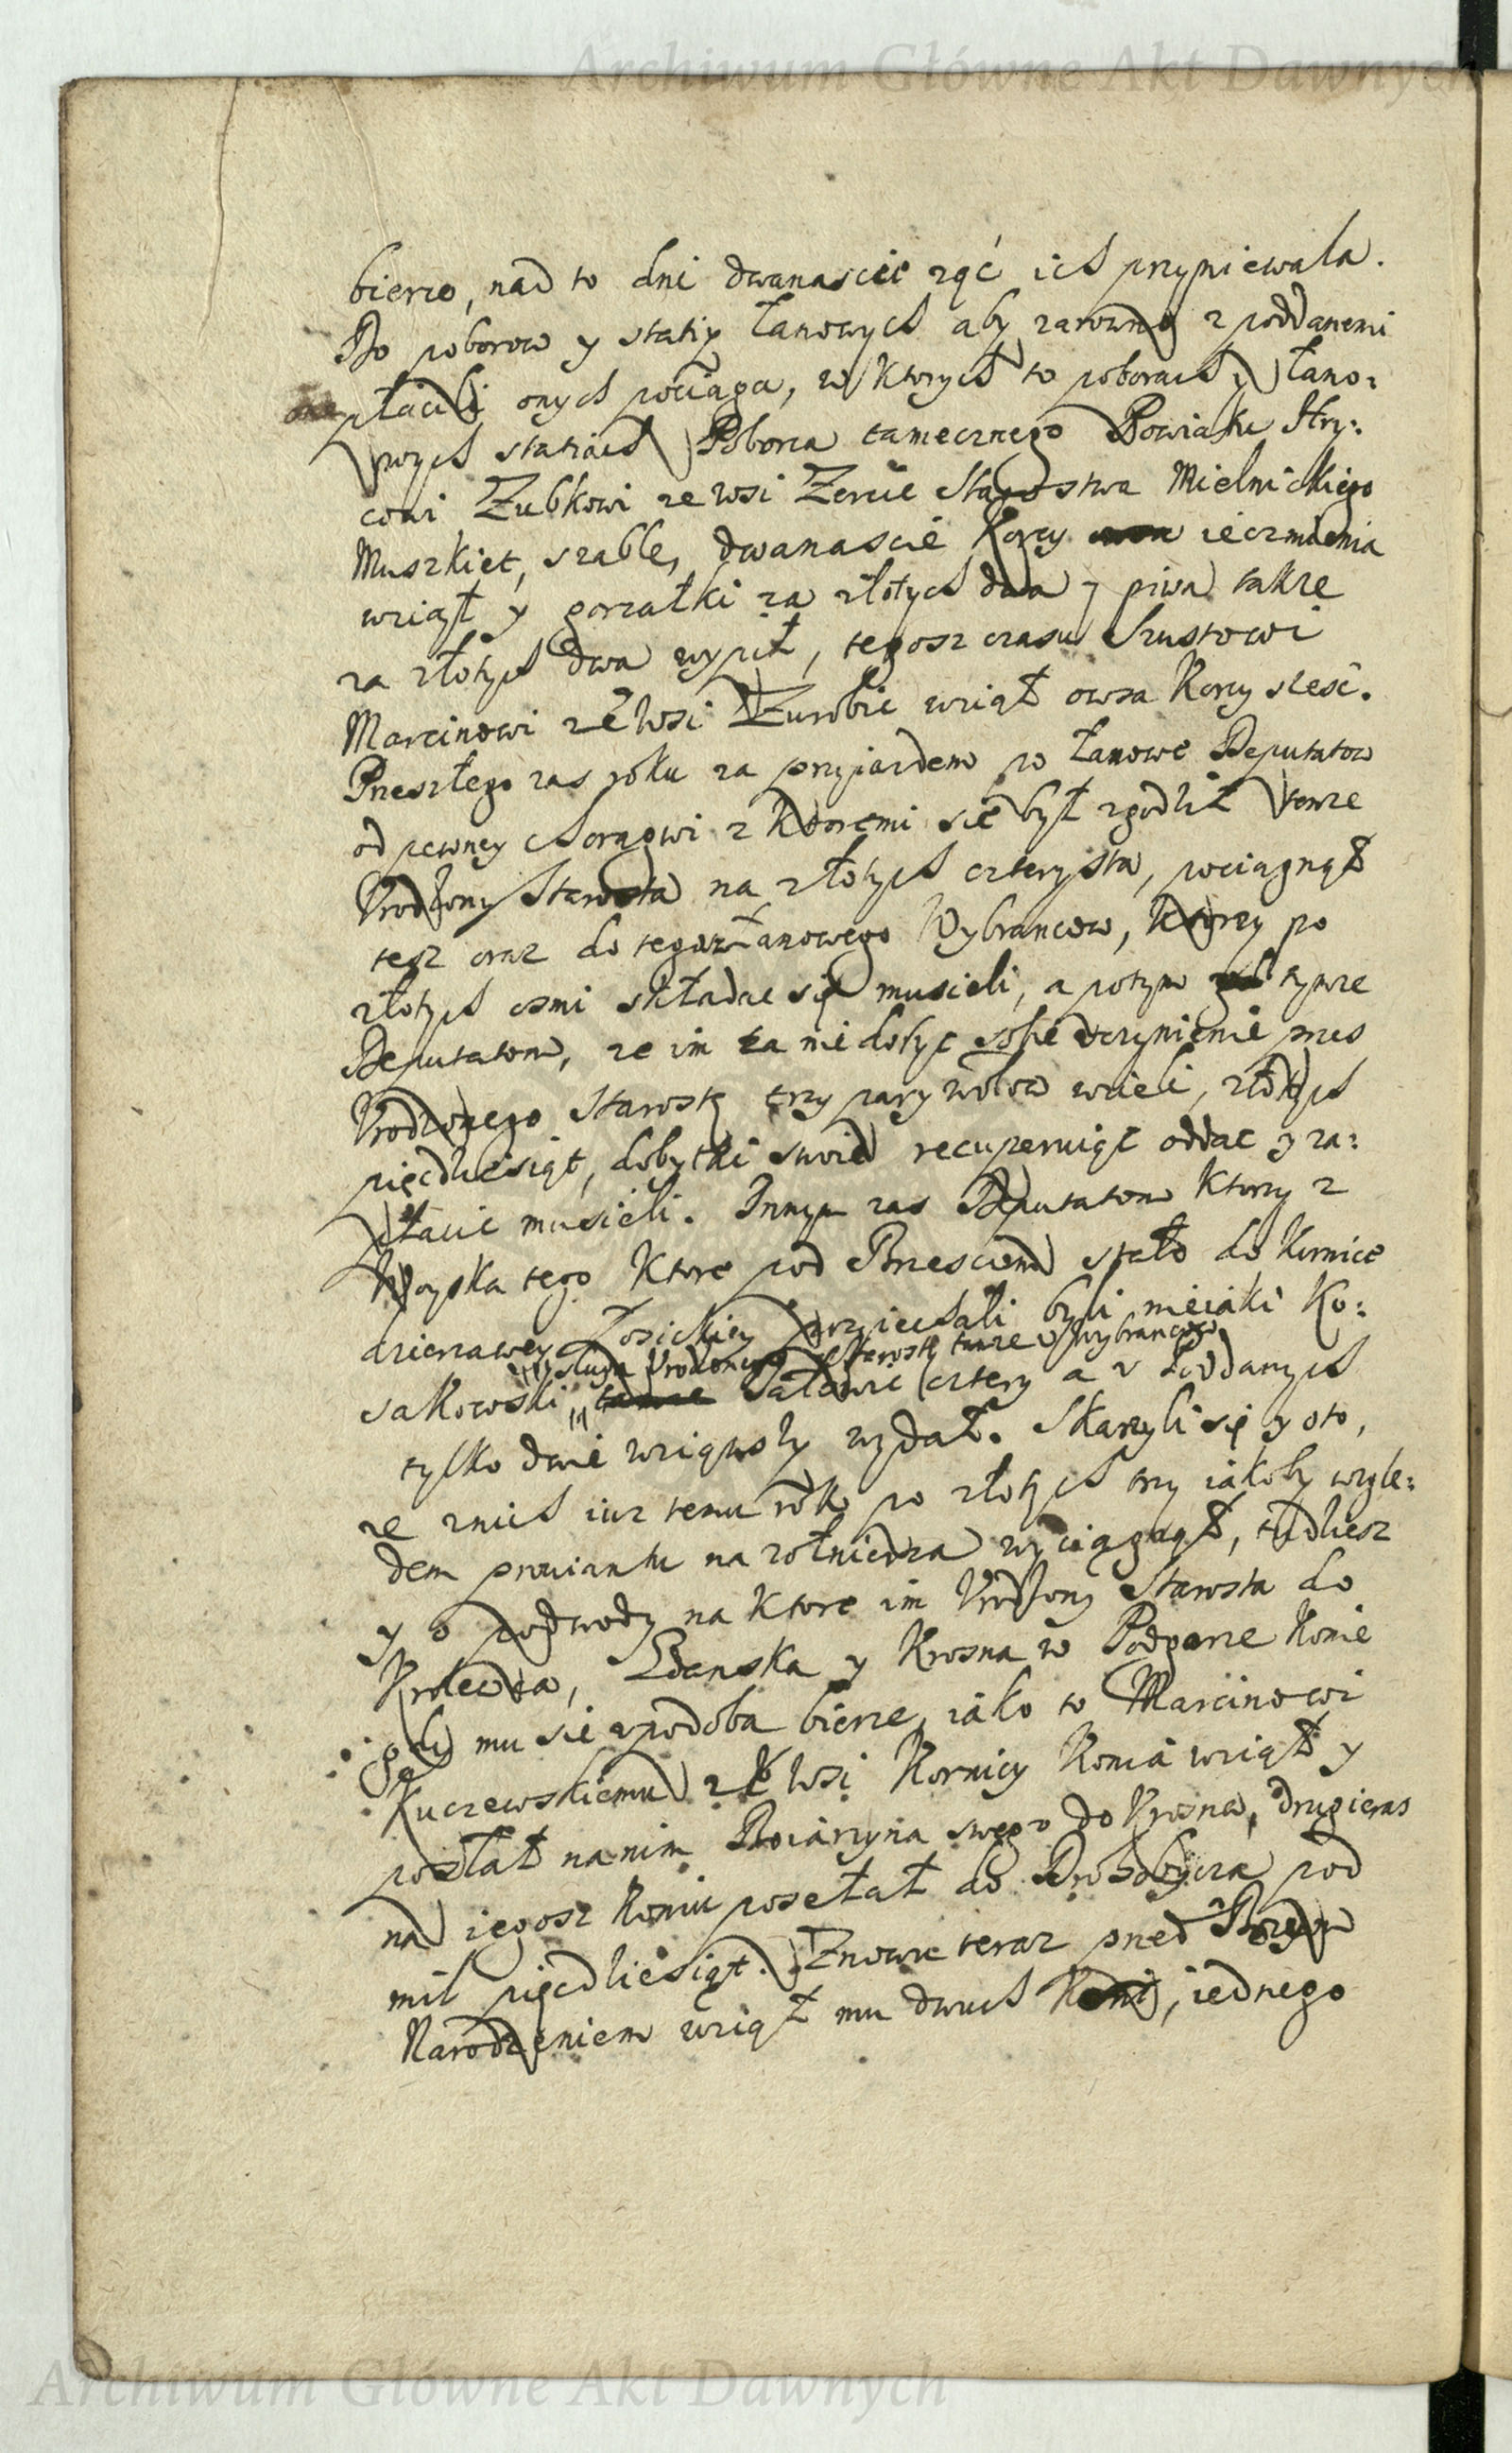 Archiwum Główne Akt Dawnych
bierze, nad to dni dwanascie ząć ich przyniewala.
Do poborow y statiy łanowych aby zarowno z poddanemi
płacili onych pociąga, w ktorych to poborach y łano:
wych statiach Poborca tamecznego Powiatu Hry:
cowi Zubkowi ze wsi Zercie Starostwa Mielnickiego
Muszkiet, szable, dwanascie Korcy ieczmienia
wziął y gorzałki za złotych dwa y piwa takze
za złotych dwa wypił, tegosz czasu Szustowi
Marcinowi ze wsi Zurobic wziął owsa Korcy szesć.
Przeszłego zas roku za przyjazdem po łanowe Deputatow
od pewney chorągwi z ktoremi sie był zgodził tenze
Vrodzony Starosta na złotych czterysta, pociągnął
tesz oraz do tegosz łanowego Wybrancow, ktorzy po
złotych osmi składac się musieli, a potym tymze
Deputatom, ze im za nie dosyc sobie vczynienie przes
Vrodzonego Starostę trzy pary wołow wzieli, złotych
pięcdziesiąt, dobytki swoie recuperuiąc oddac y za:
płacic musieli. Innym zas Deputatom ktorzy z
Woyska tego ktore pod Brzesciem stało do Kornice
dzierzawey Łosickiey przyiechali byli nieiaki Ko:
sakowski sługa Vrodzonego Starosty tamze v wybrancow
Jałowic cztery a v Poddanych
tylko dwie wziąwszy wydał. Skarzyli się y oto,
ze znich iuz temu rok po złotych trzy iakoby wzgle:
dem prowiantu na zołnierza wyciągnął, tudziesz
y o podwody na ktore im Vrodzony Starosta do
Krolewca, Gdanska y Krosna w Podgorze konie
gdy mu sie spodoba bierze, iako to Marcinowi
Kuczewskiemu ze wsi Kornicy Konia wziął y
posłał na nim Boiarzyna swego do Krosna, drugi eras
na iegosz koniu posełał do Drohobycza pod
mil pięcdziesiąt. Znowu teraz przed Bozym
Narodzeniem wziął mu dwuch koni, iednego
Archiwum Główne Akt Dawnych